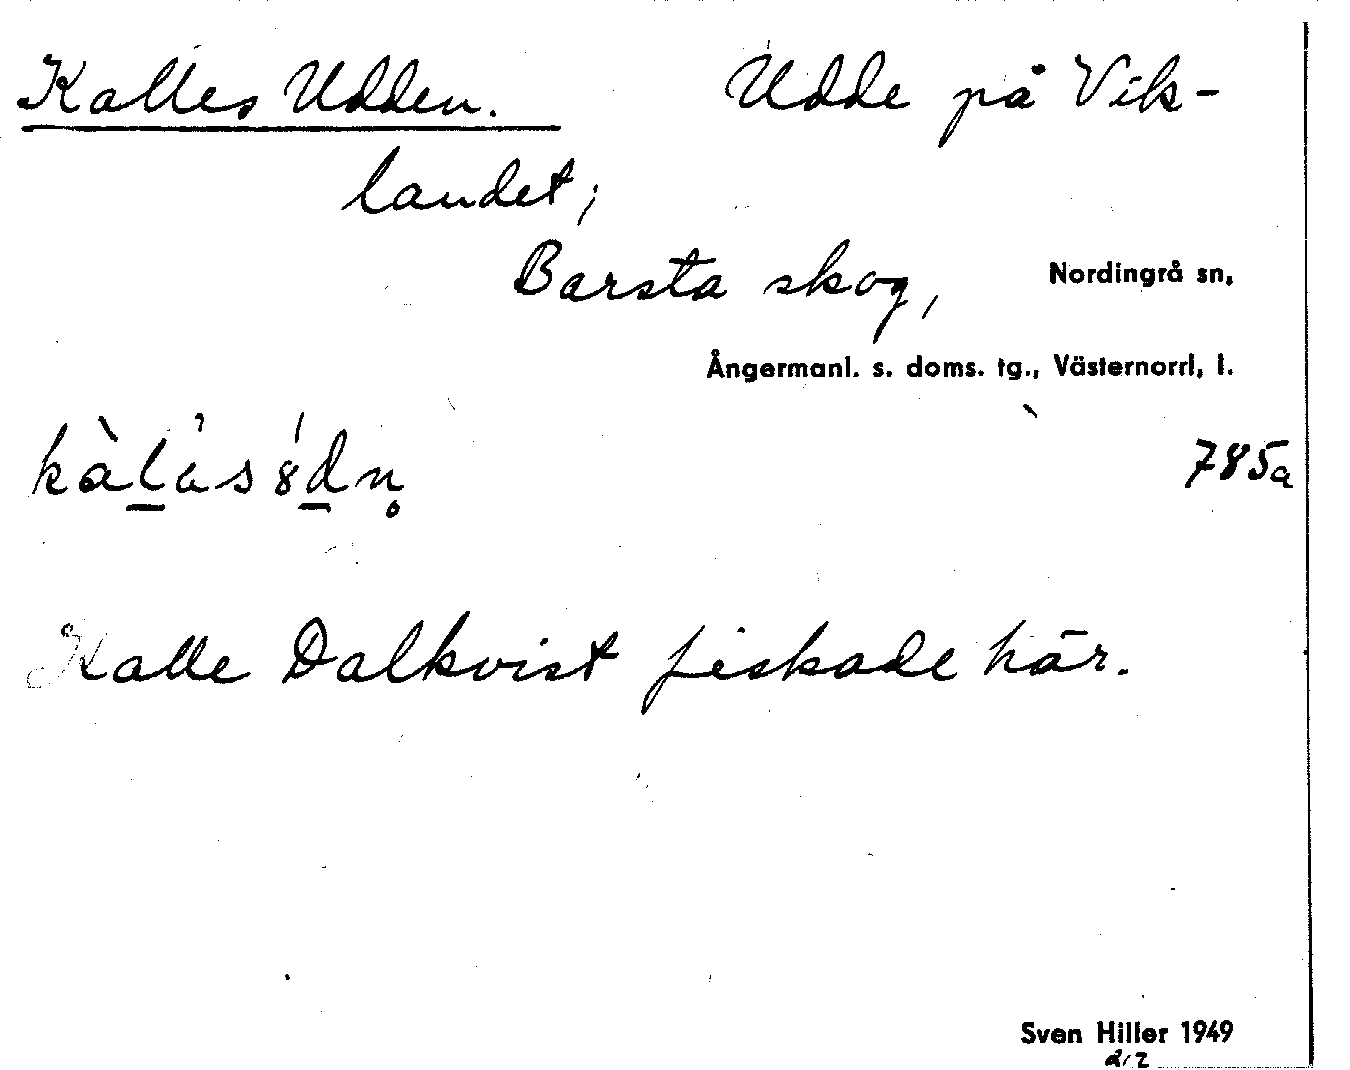 Kalles Udden. Udde på Vik-
landet;
Barsta skog, Nordingrå sn,
Ångermanl. s. doms. tg., Västernorrl, l.
kàl̲as 8́d̲n̥
785a
Kalle Dalkvist fiskade här.
Sven Hiller 1949